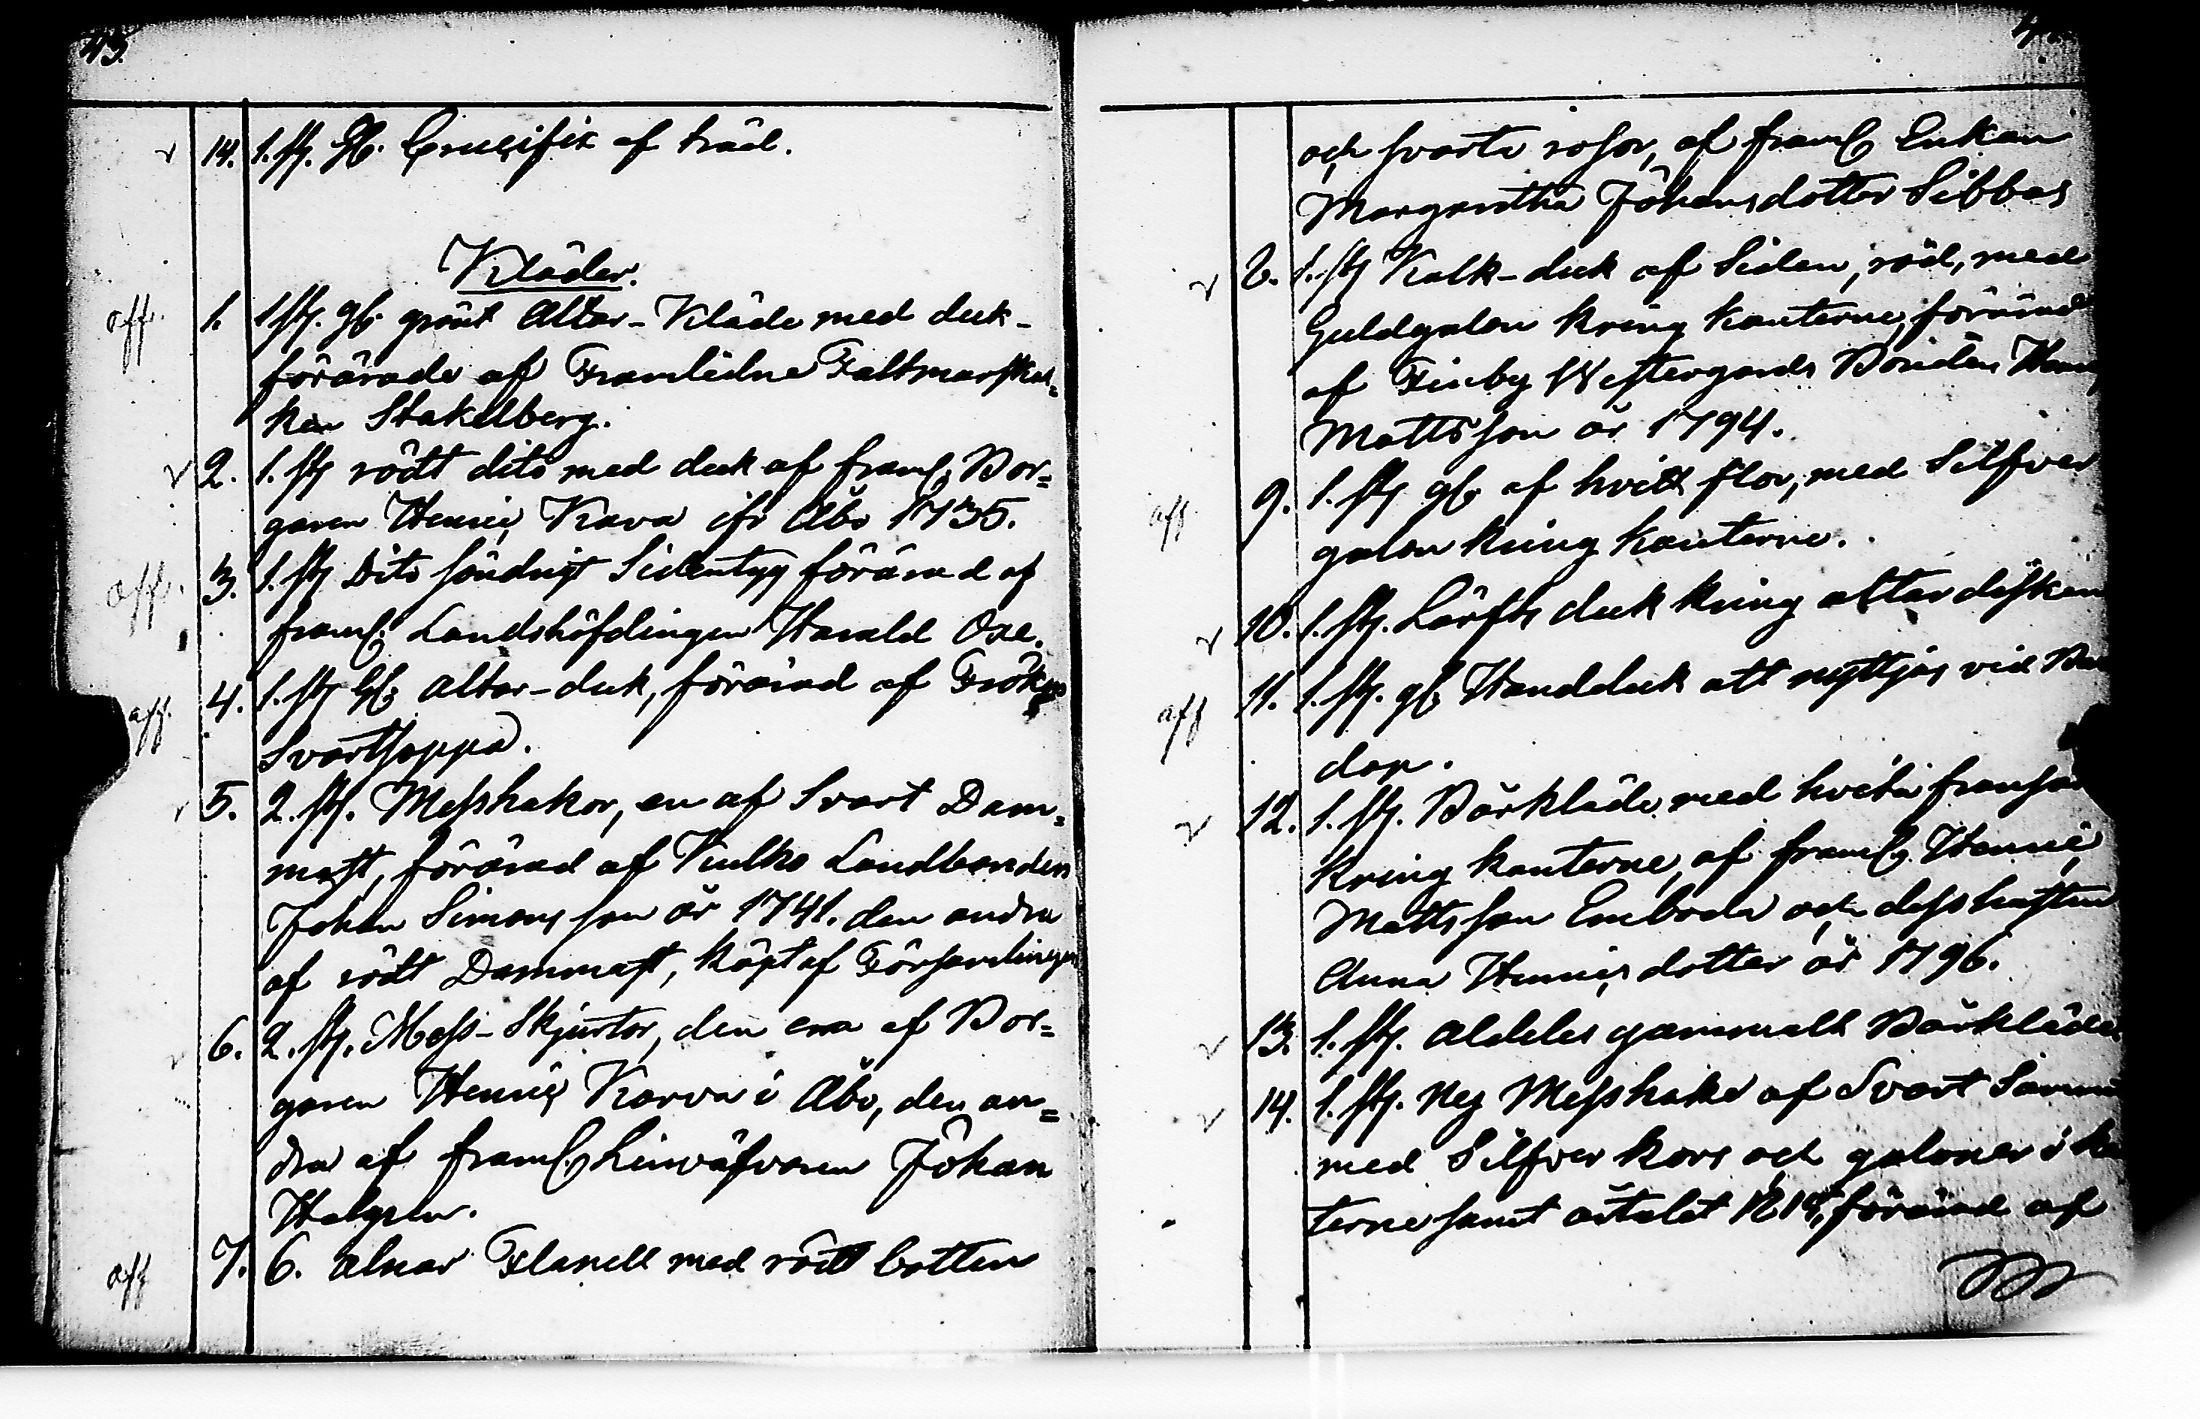 43.
✓ 14. 1. st. gl. Crucifix af träd.
Kläder.
aff. 1. 1 st. gl. grönt Altar-Kläde med duk-
förärade af Framledne Faltmarskal-
kan Stakelberg.
✓ 2. 1. st rödt dito med duk af framl. Bor=
garen Henric Karva ifr Åbo 1735.
aff. 3. 1. st Dito söndrigt Sidentyg förärad af
framl. Landshöfdingen Harald Oxe.
aff. 4. 1. st gl. Altar-duk, förärad af Fröken
Svarthoppa.
✓ 5. 2. st. Messhakar, en af Svart Dam=
mast, förärad af Kulho Landbonden
Johan Simonsson år 1741. den andra
af rödt Dammast, köpt af Församlingen
✓ 6. 2. st. Mess-Skjortor, den ena af Bor=
garen Henric Karva i Åbo, den an=
dra af framl. Linväfvaren Johan
Halgren.
aff 7. 6. alnar Flanell med rödt botten
och svarta rosor, af framl Enkan
Margaretha Johansdotter Sibbas
✓ 8. 1. st Kalk-duk af Siden, röd, med
Guldgalon kring kanterne, förärad
af Finby Westergårds Bonden
Mattsson år 1794.
aff. 9. 1. st gl. af hvitt flor, med Silfver
galon kring kanterne.
✓ 10. 1. st. Lärfts duk kring altardisken
aff 11. 1. st. gl. Handduk att nyttjas vid
dop.
✓ 12. 1. st. Bårkläde med hvita fransar
kring kanterne, af framl. Henric
Mattsson Emboda och dess hustru
Anna Henricsdotter år 1796.
✓ 13. 1. st. aldeles gammalt Bårkläde
✓ 14. 1. st. ny Messhake af Svart
med Silfver kors och galoner i
terne samt årtalet förärad af